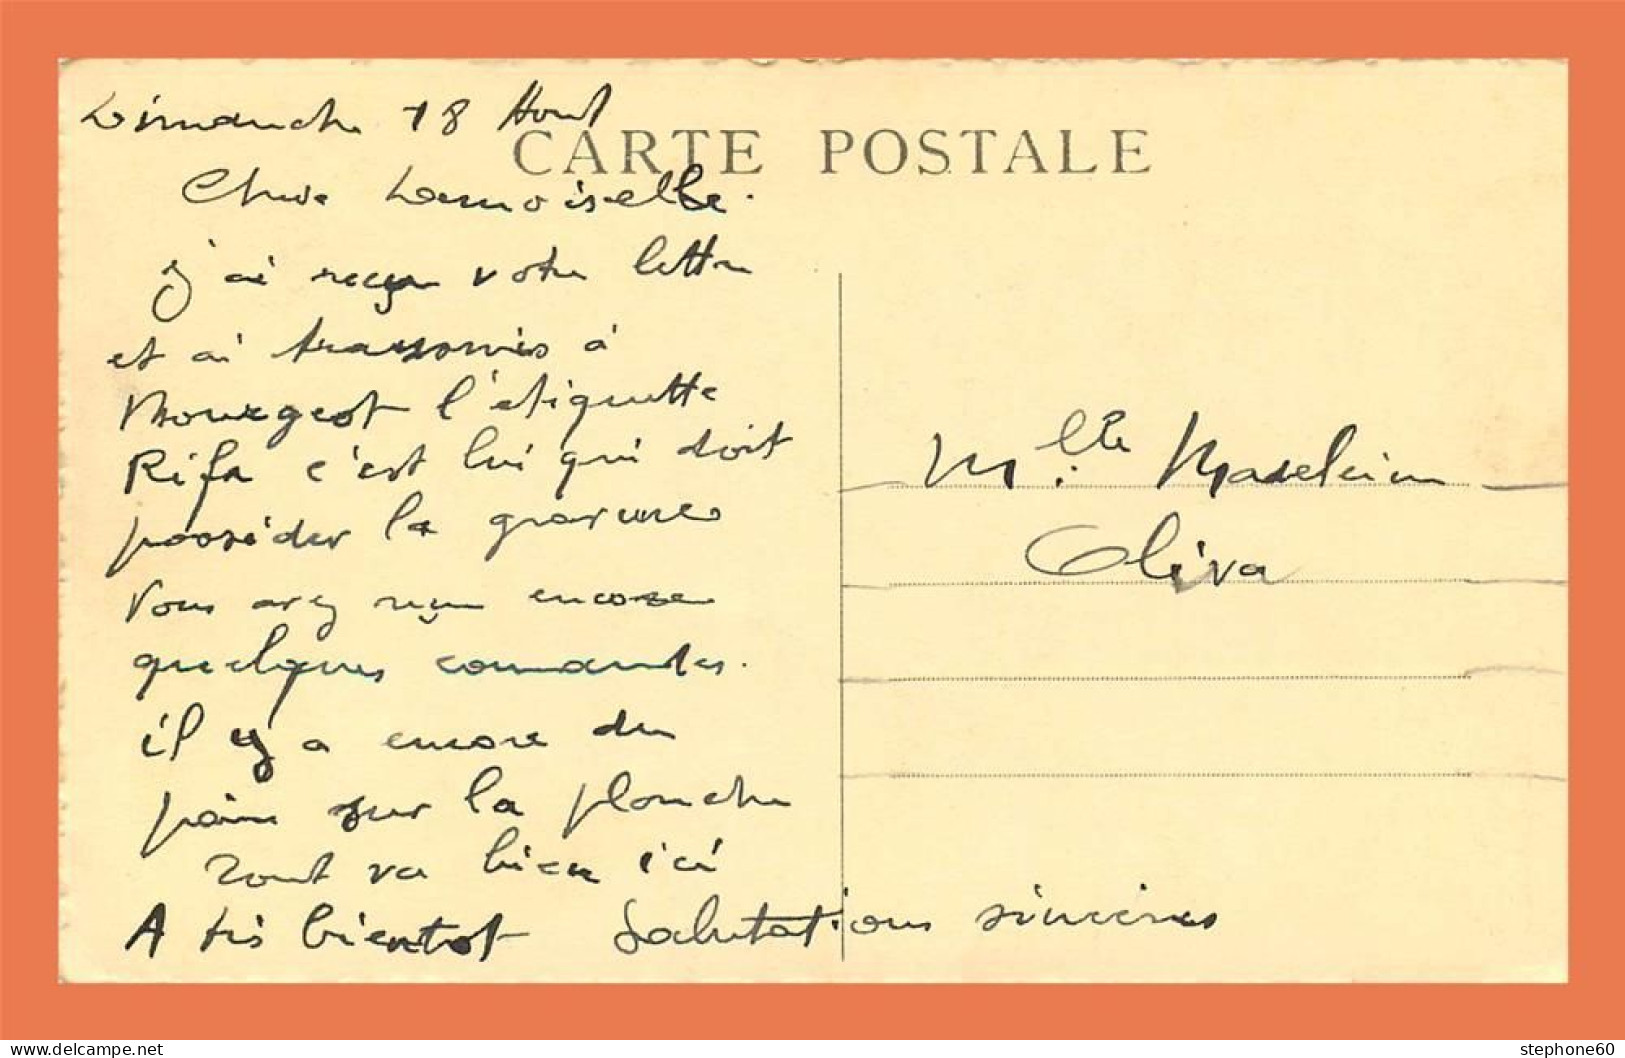 Dimanche 18 Aout
CARTE POSTALE
Chère Demoiselle.
J'ai reçu votre lettre
et ai transmis à
Mourgeot l'etiquette
Rifa c'est lui qui doit
posséder la gravure
Vous avez reçu encore
quelques comandes.
il y a encore du
pain sur la planche
Tout va bien ici
A tis bientot Salutations sincères
Mlle Madeleine
Oliva
stephone60
delcampe.net